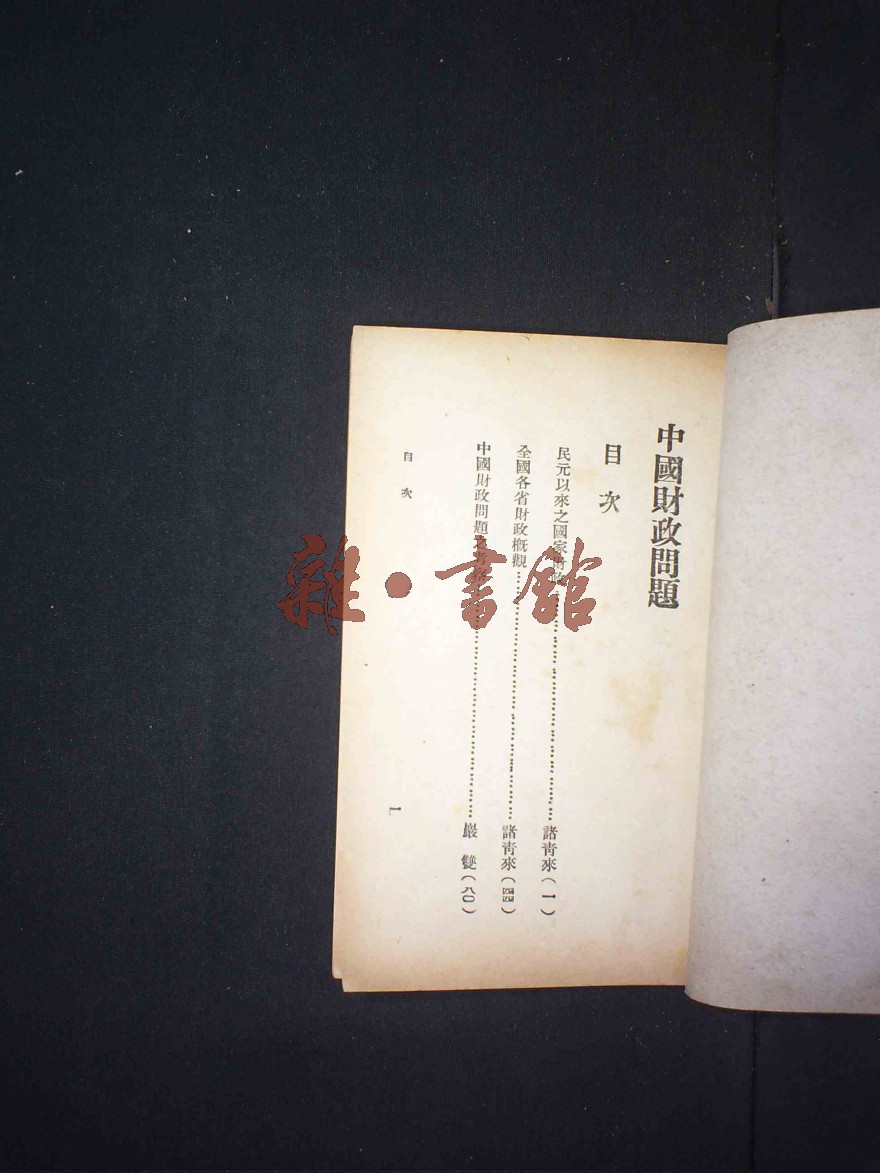 中國財政問題
目次
民元以來之國家財政……諸靑來(一)
全國各省財政概觀……諸靑來(四四)
中國財政問題……嚴雙(八〇)
目次
一
雜·書館